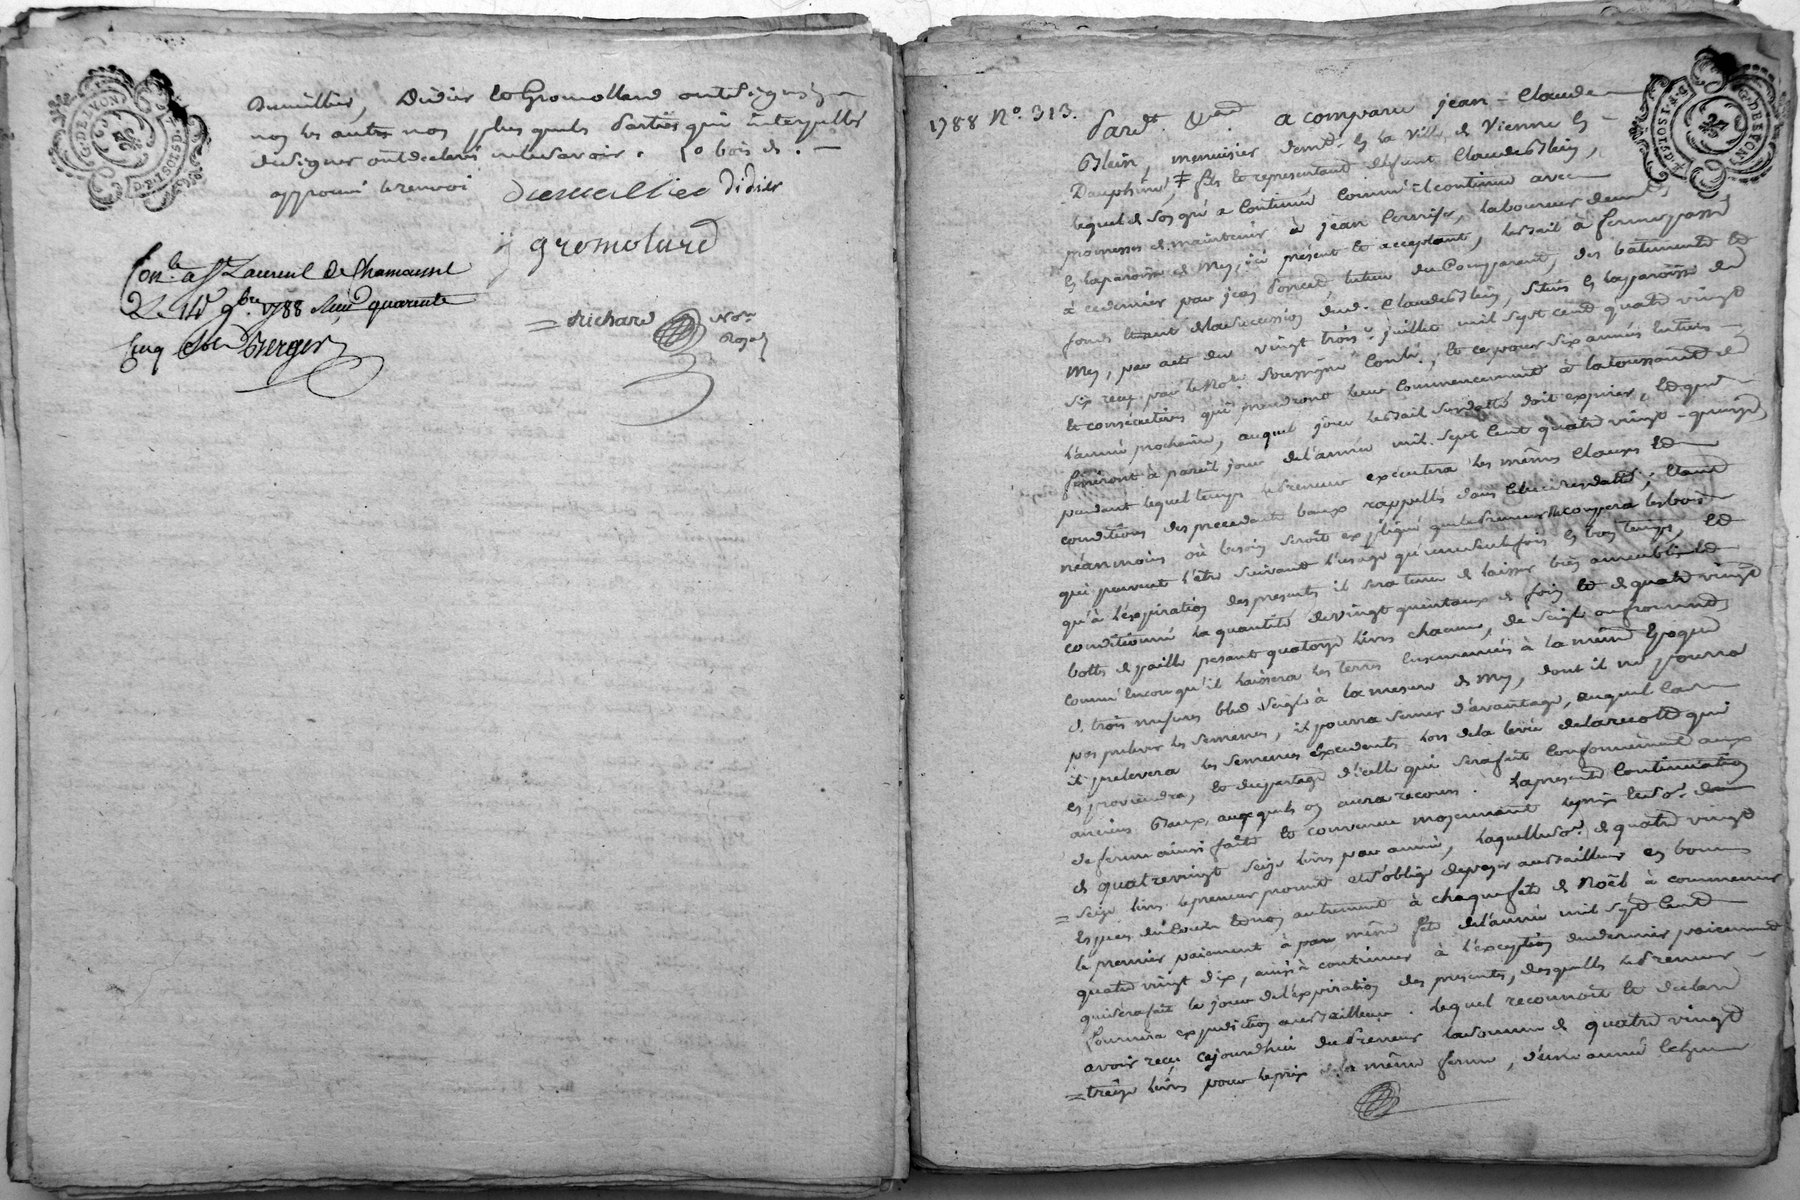 Dumillier, Didier et Gromollard ont signé
non les autres non plus que les parties qui interpellés
de signer ont déclaré ne le savoir. bois de.
approuvé le renvoi
dumillier didier
j gromolard
Con.lé a St Laurent De Chamousset
Le 14e 9bre 1788 Reçu quarente
Cinq sols Berger
= Richard Nore
Royal
1788 N° 313.
Pardt a comparu jean-Claude
Blein, menuisier demt en la Ville de Vienne en
Dauphiné, ≠ fils et représentant defunt Claude Blein,
lequel de son gré a continué comme il continue avec
promesses de maintenir à jean laboureur demt
en la paroisse de Mey, ici présent et acceptant, le bail à ferme passé
à ce dernier par jean tuteur du Comparant, des bâtiments et
fonds de la succession dud. Claude Blein, situés en la paroisse de
Mey, par acte du vingt trois juillet mil sept cent quatre vingt
six reçu par le Nore soussigné Conlé, et ce pour six années entieres
et consécutives qui prendront leur commencement à la toussaint de
l'année prochaine, auquel jour le bail susdatté doit expirer, et qui
finiront à pareil jour de l'année mil sept cent quatre vingt-quinze,
pendant lequel temps le preneur exécutera les mêmes clauses et
conditions des précédents baux rappellés dans celui susdatté; étant
néanmoins où besoin seroit expliqué que le preneur ne coupera les bois
qui peuvent l'être suivant l'usage qu'une seule fois en bon temps, et
qu'à l'expiration des presentes il sera tenu de laisser bien
conditionné la quantité de vingt quintaux de foin et de quatre vingt
bottes de paille pesant quatorze livres chacune, de seigle ou froment,
comme encore qu'il laissera les terres ensemencées à la même époque
de trois mesures bled seigle à la mesure de Mey, dont il ne pourra
pas prélever les semences, il pourra semer d'avantage, auquel cas
il prelevera les semences excédentes lors de la levée de la récolte qui
en proviendra, et du partage d'icelle qui sera fait conformément aux
anciens Baux, auxquels on aura recours. La présente continuation
de ferme ainsi faite et convenue moyennant le prix et so.e
de quatrevingt seize livres par année, laquelle so.e de quatre vingt
= seize livres le preneur promet et s'oblige de payer au bailleur en bonnes
Espèces du Cours et non autrement à chaque fête de Noël à commencer
le premier paiement à pareille même fête de l'année mil sept cent
quatre vingt dix, ainsi à continuer à l'exception du dernier paiement
qui sera fait le jour de l'expiration des presentes, desquelles le Preneur
fournira expédition au Bailleur. Lequel reconnoit et déclare
avoir reçu cejourd'hui du Preneur la somme de quatre vingt
= treize livres pour le prix de la même ferme, d'une année échue